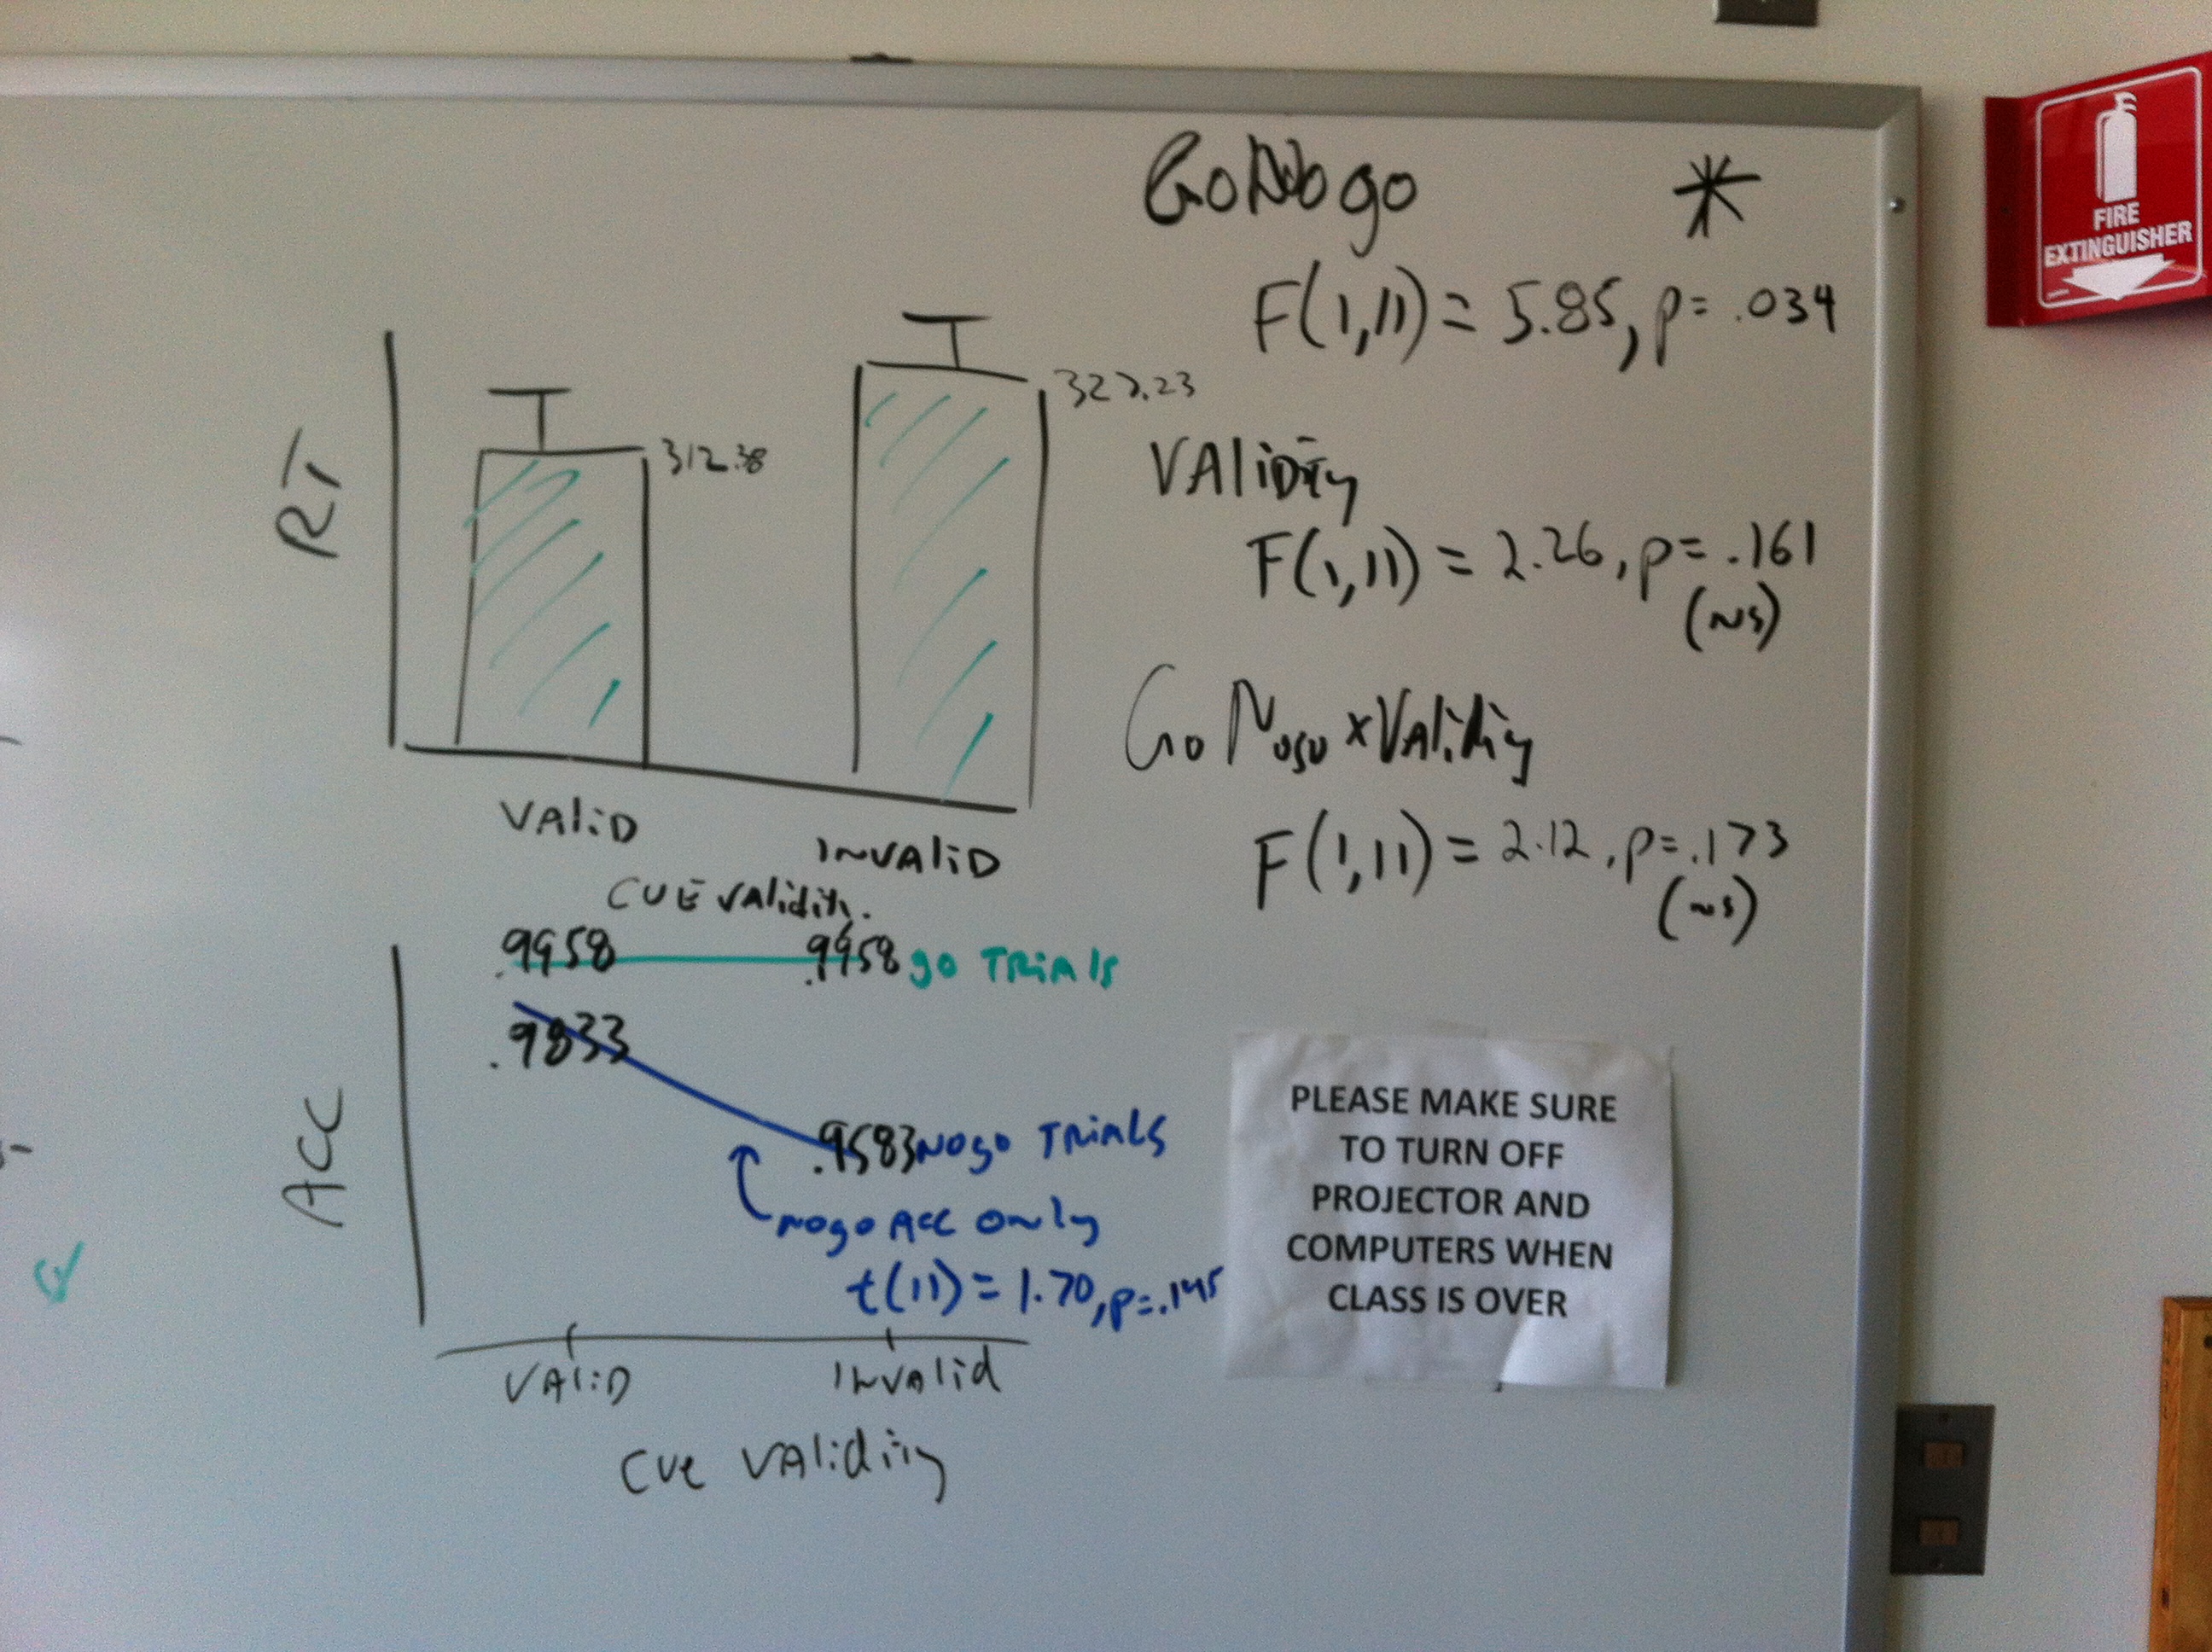 GoNogo *
F(1,11) = 5.85, p= .034
RT
312.38
VALiD
INVALiD
CUE VAlidity
VALiDiTy
F(1,11) = 2.26, p= .161
(NS)
Go Nogo x VALidity
F(1,11) = 2.12, p= .173
(NS)
ACC
.9958
.9958 go TRiAls
.9833
.9583 Nogo TRiALS
nogo ACC only
t(11) = 1.70, p=
VALiD
INVAlid
CUE VALidity
FIRE
EXTINGUISHER
PLEASE MAKE SURE
TO TURN OFF
PROJECTOR AND
COMPUTERS WHEN
CLASS IS OVER